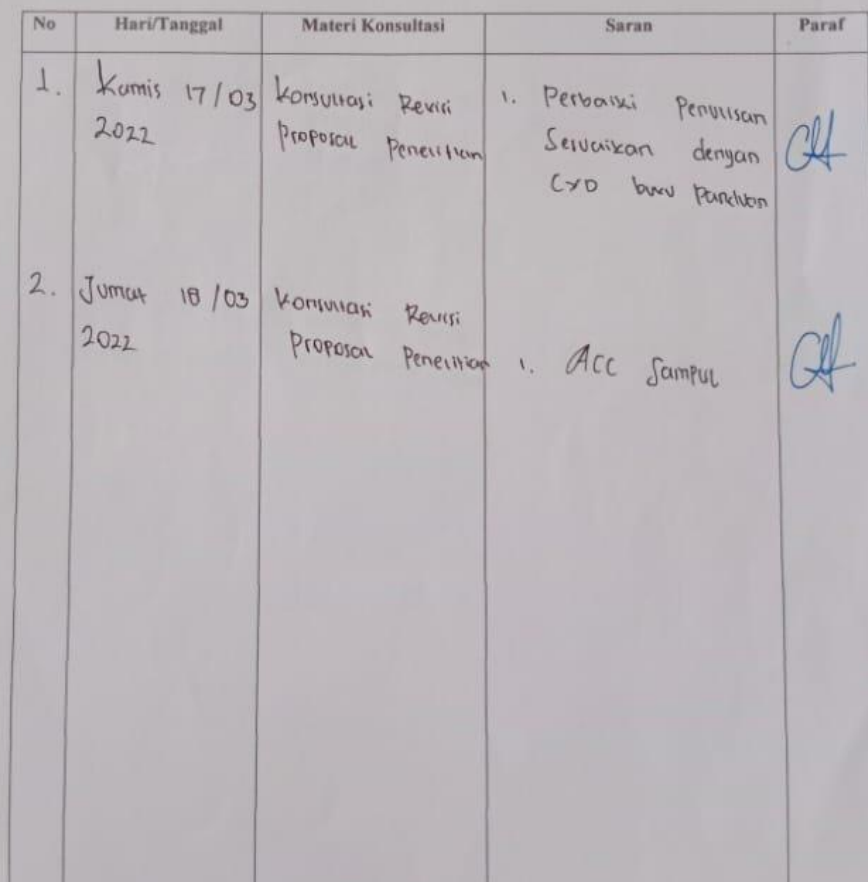 No Hari/Tanggal Materi Konsultasi Saran Paraf
1. Kamis 17/03 2022
Konsultasi Revisi
Proposal Penelitian
1. Perbaiki Penulisan
Sesuaikan dengan
buku Panduan
2. Jumat 18/03 2022
Konsultasi Revisi
Proposal Penelitian
1. ACC Sampul